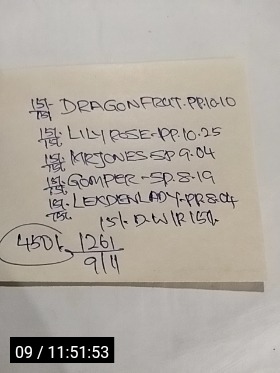 15/- DRAGONFRUIT.PP.10.10
15/-
15/- LILY ROSE-PP.10.25
15/-
15/- MRJONES-SP 9.04
15/-
15/- GOMPER-SP.8.19
15/-
15/- LEXDENLADY-PP.8.04
15/-
15/- D-W/R 15/-
450/- 1261
9/11
09 / 11:51:53